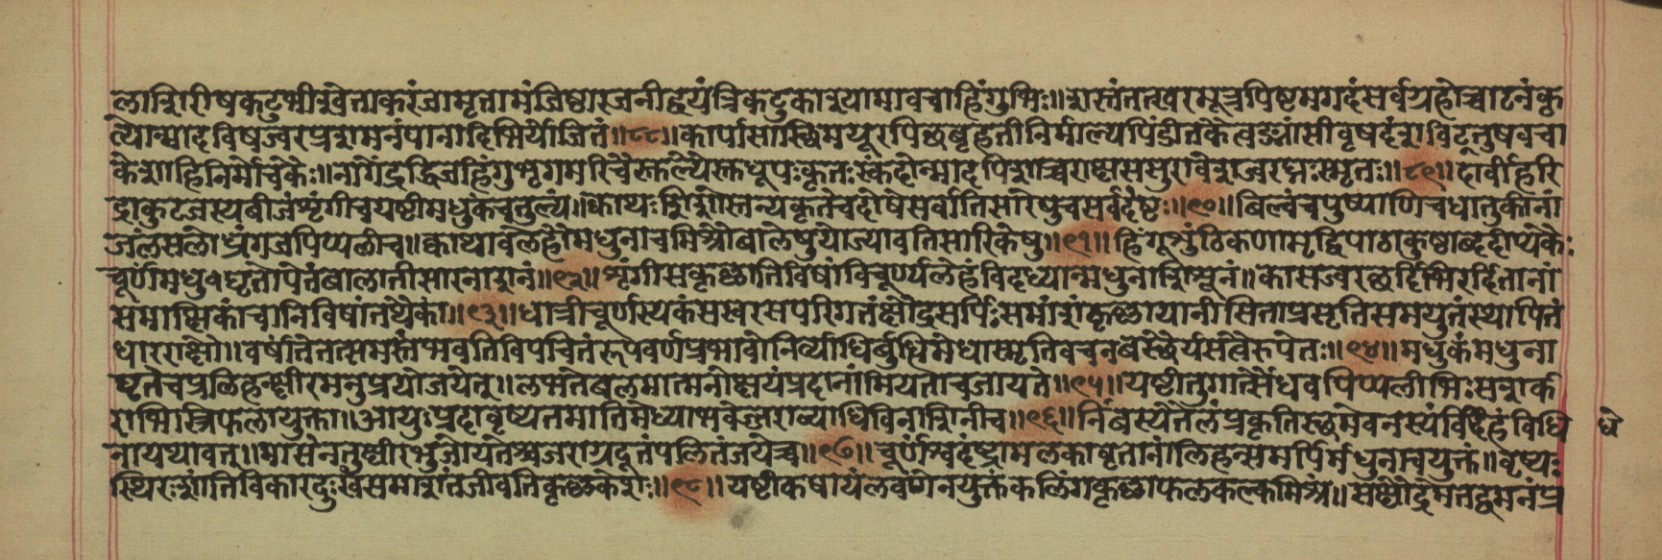 लाशिरीषकटुभीश्वेताकरंजामृतामंजिष्ठारजनीद्वयंत्रिकटुकाश्यामावचाहिंगुभिः॥शस्तंतत्खरमूत्रपिष्टमगदंसर्वग्रहोच्चाटनंकृ
त्योन्मादविषज्वरप्रशमनंपानादिभिर्योजितं॥८८॥कार्पासास्थिमयूरपिछबृहतीनिर्माल्यपिंडीतकैत्वङ्मांसीवृषदंशविट्तुषवचा
केशाहिनिर्मोचकैः॥नागेंद्रद्विजहिंगुशृगमरिचैस्तुल्यैस्तधूपःकृतःस्कंदोन्मादपिशाचराक्षससुरावेशज्वरघ्नःस्मृतः॥८९॥दार्वीहरि
द्राकुटजस्यबीजंशृंगीचयष्टीमधुकंचतुल्यं॥क्वाथःशिशोस्तन्यकृतेचदोषेसर्वातिसारेषुचसर्वदेष्टः॥९०॥बिल्वंचपुष्पाणिचधातुकीनां
जलंसलोध्रंगजपिप्पलीच॥क्वाथावलेहौमधुनाचमिश्रौबालेषुयोज्यावतिसारिकेषु॥९१॥हिंगूशुंठिकणामृद्विपाठाकुष्ठाब्ददीप्यकैः
चूर्णंमधुवघृतोपेतंबालातीसारनाशनं॥९२॥शृंगीसकृष्णातिविषांविचूर्ण्यलेहंविदध्यान्मधुनाशिशूनं॥कासज्वरछर्दिभिरर्दितानां
समाक्षिकांचातिविषांतथैकां॥९३॥धात्रीचूर्णस्यकंसखरसपरिगतंक्षौद्रसर्पिःसमांशंकृष्णायानीसिताप्रसृतिसमयुतंस्थापितं
धारराशौ॥वर्षांतेतत्समस्तंभवतिविपचितंरूपवर्णप्रभावोनिर्व्याधिर्बुधिमेधास्मृतिवचनबस्थैर्यसत्वैरुपेतः॥९४॥मधुकंमधुना
घृतेनचप्रलिहन्क्षीरमनुप्रयोजयेत्॥लभतेबलमात्मनोक्षयंप्रदानांभियताचजायते॥९५॥यष्टीतुगासैंधवपिप्पलीभिःसशर्क
राभिस्त्रिफलायुक्ता॥आयुःप्रदावृष्यतमातिमेध्याभवेज्जराव्याधिविनाशिनीच॥९६॥निंबस्यतैलंप्रकृतिस्छमेवनस्यंविधिहंविधि धे
नायथावत्॥मासेनतुक्षीरभुजोयतेश्चजराग्रदूतंपलितंजयेच्च॥९७॥चूर्णंश्वदंष्ट्रामलकामृतानांलिहन्ससर्पिर्मधुनाचयुक्तं॥वृष्यः
स्थिरःशांतिविकारदुःखसमाशतंजीवतिकृष्णकेशः॥९८॥यष्टीकषायंलवणेनयुक्तंकलिंगकृष्णाफलकल्कमिश्रं॥सक्षौद्रमतद्वमनंप्र